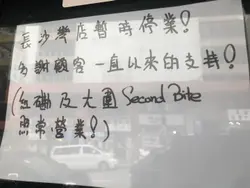 長沙灣店暫時停業!
多謝顧客一直以來的支持!
(紅磡及大圍Second Bite
照常營業!)